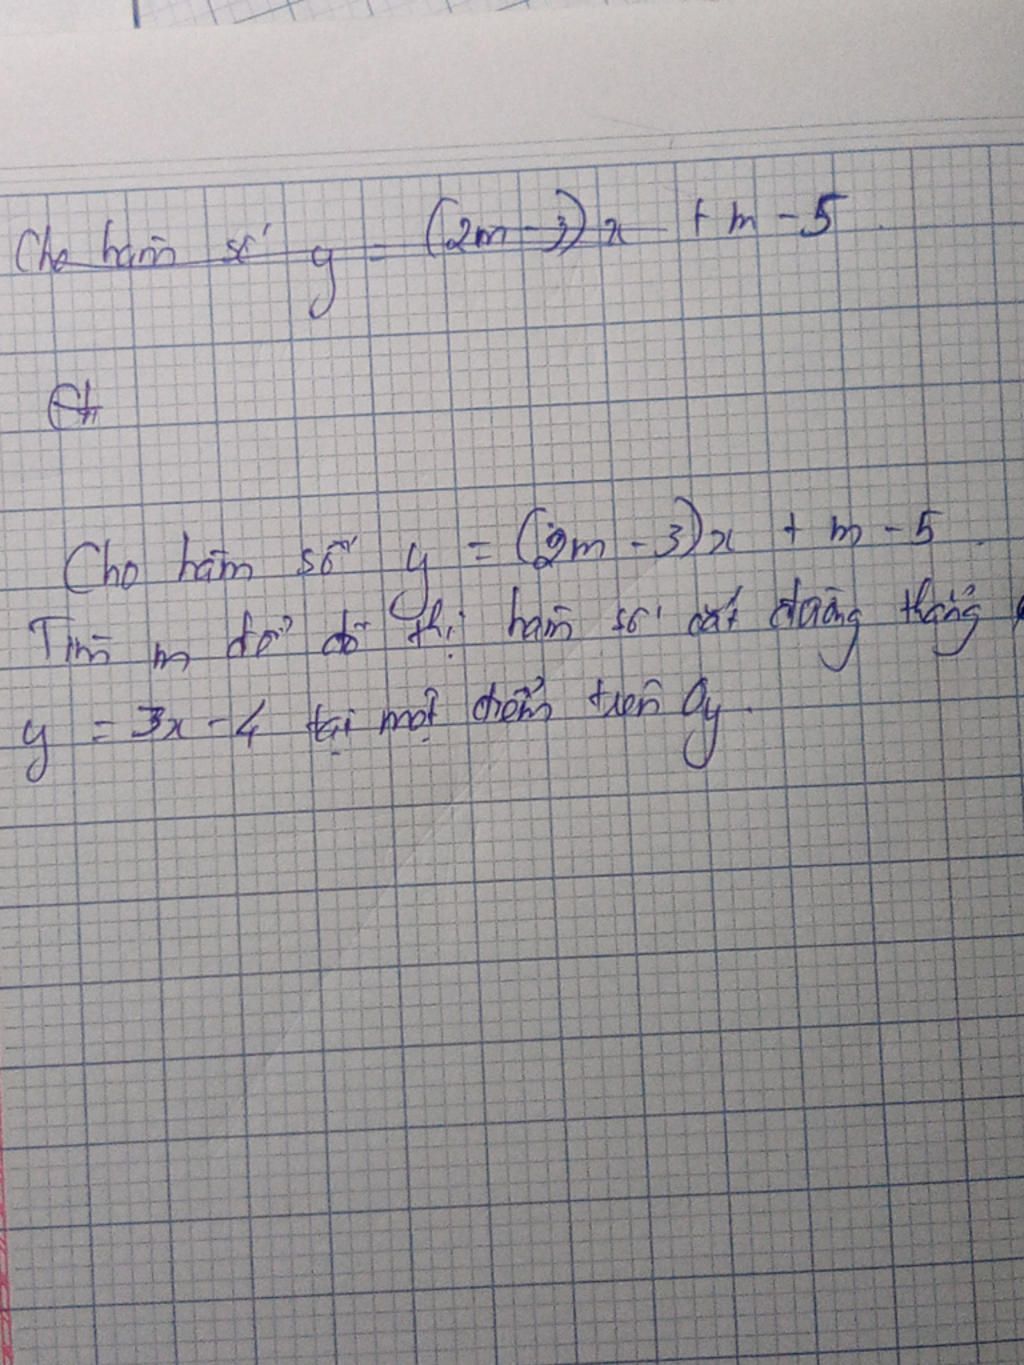 Cho hàm số y = (2m - 3)x + m - 5
Cho hàm số y = (2m - 3)x + m - 5.
Tìm m để đồ thị hàm số cắt đường thẳng
y = 3x - 4 tại một điểm trên Oy.